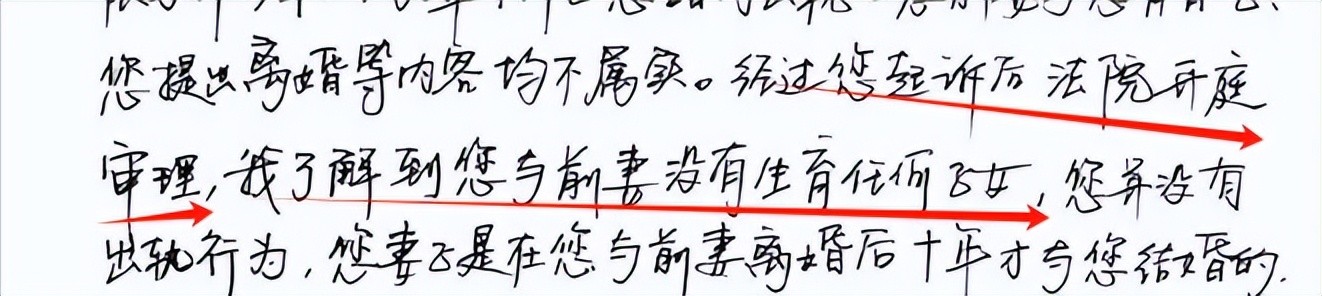 您提出离婚等内容均不属实。经过您起诉后法院开庭
审理,我了解到您与前妻没有生育任何子女,您并没有
出轨行为,您妻子是在您与前妻离婚后十年才与您结婚的.